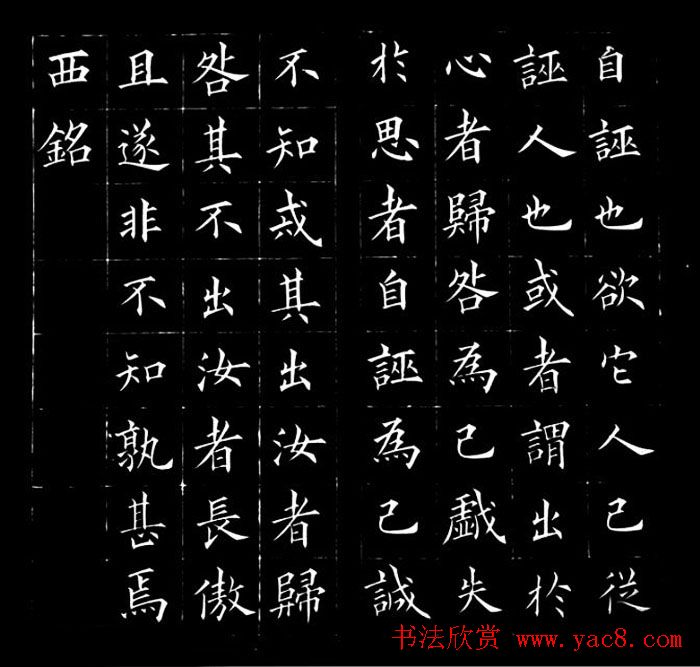 自誣也欲它人己從
誣人也或者謂出於
心者歸咎為己戲失
於思者自誣為己誠
不知戒其出汝者歸
咎其不出汝者長傲
且遂非不知孰甚焉
西銘
书法欣赏 www.yac8.com